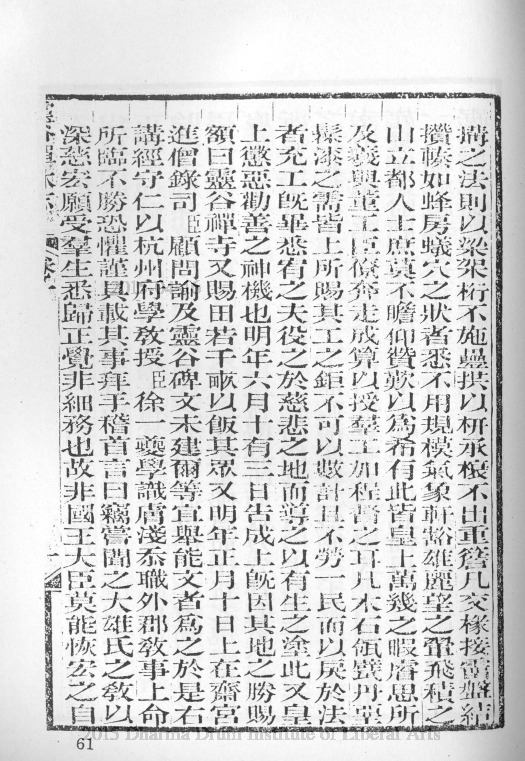 搆之法則以梁架桁不施疊栱以枅承榱不出重簷凡交椽接霤盤結
攢輳如蜂房蟻穴之狀者悉不用規模氣象軒豁雄麗望之翬飛積之
山立都人士庶莫不瞻仰贊歎以爲希有此皆皇上萬幾之暇睿思所
及義輿董工臣僚奔走成算以授羣工如程督之耳凡木石瓴甓丹堊
髹漆之需皆上所賜其工之鉅不可以數計且不勞一民而以戾於法
者充工旣畢悉宥之夫役之於慈悲之地而導之以有生之塗此又皇
上懲惡勸善之神機也明年六月十有三日告成上旣因其地之勝賜
額曰靈谷禪寺又賜田若干畝以飯其眾又明年正月十日上在齋宮
進僧錄司臣顧問諭及靈谷碑文未建爾等宜舉能文者爲之於是右
講經守仁以杭州府學敎授臣徐一夔學識膚淺忝職外郡敎事上命
所臨不勝恐懼謹具載其事拜手稽首言曰竊嘗聞之大雄氏之敎以
深慈宏願受羣生悉歸正覺非細務也故非國王大臣莫能恢宏之自
61
2015 Dharma Drum Institute of Liberal Arts